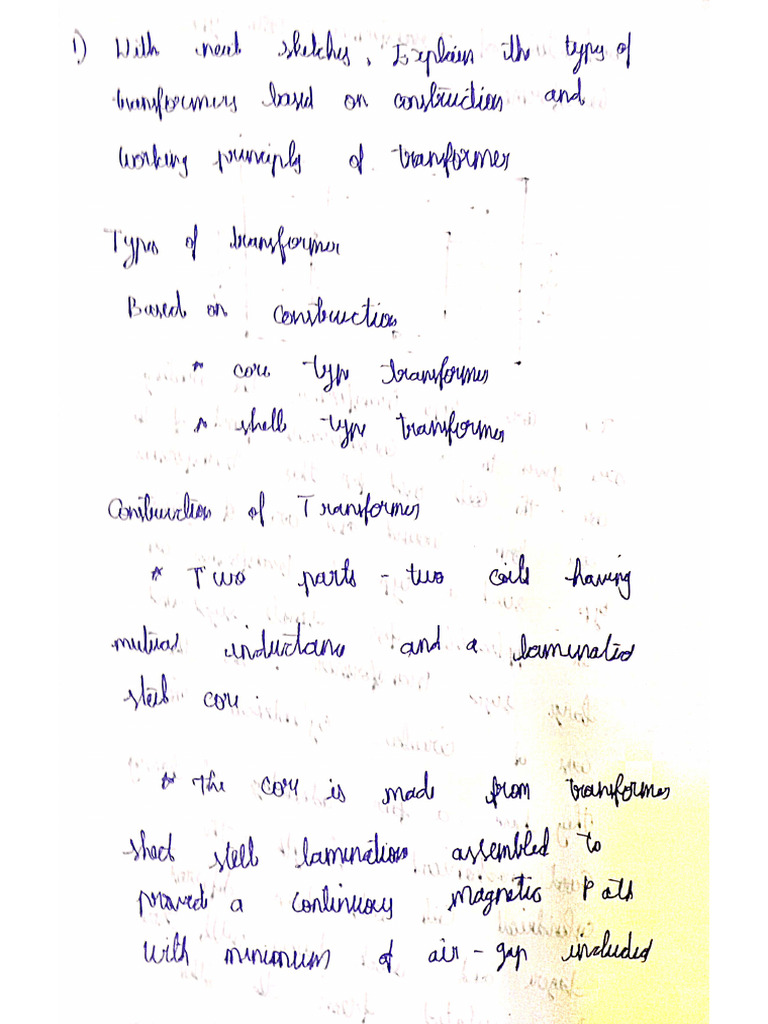 1) With neat sketches, Explain the types of
transformers based on construction and
working principle of transformer
Types of transformer
Based on construction
* core type transformer
* shell type transformer
Construction of Transformer
* Two parts - two coils having
mutual inductance and a laminated
steel core.
* The core is made from transformer
sheet steel laminations assembled to
provied a continuous magnetic path
with minimum of air-gap included